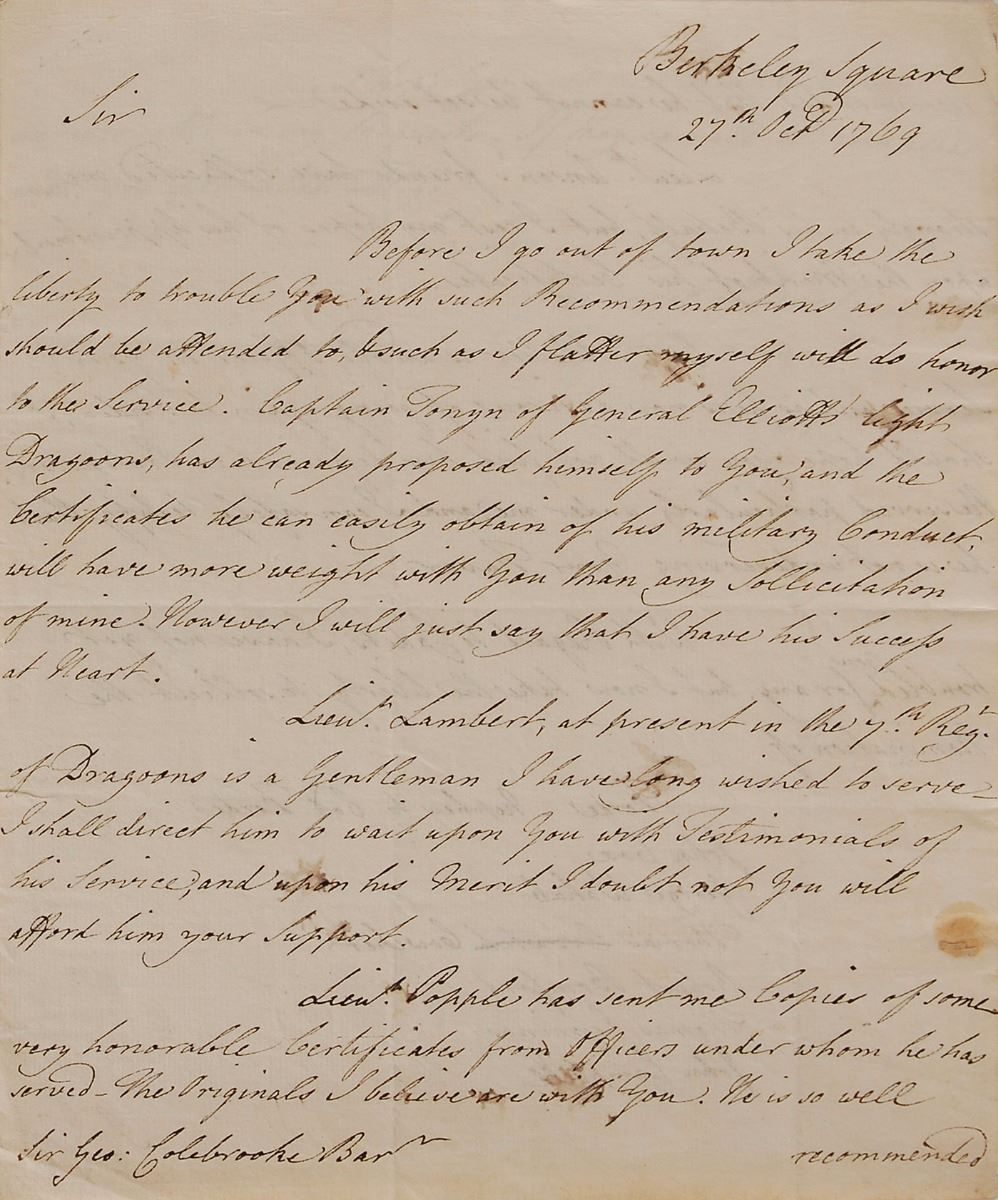 Berkeley Square
27th. Octr 1769
Sir
Before I go out of town I take the
liberty to trouble You with such Recommendations as I wish
should be attended to, & such as I flatter myself will do honor
to the Service. Captain Tonyn of General Elliotts' light
Dragoons, has already proposed himself to You, and the
Certificates he can easily obtain of his military Conduct,
will have more weight with You than any Sollicitation
of mine. However I will just say that I have his Success
at Heart.
Lieut. Lambert, at present in the 7th. Regt.
of Dragoons is a Gentleman I have long wished to serve –
I shall direct him to wait upon You with Testimonials of
his Service, and upon his Merit I doubt not You will
afford him your Support.
Lieut. Popple has sent me Copies of some
very honorable Certificates from Officers under whom he has
served – The Originals I believe are with You. He is so well
Sir Geo: Colebrooke Bart
recommended